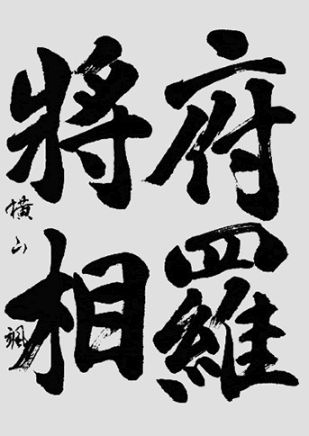 府羅
將相
横山颯